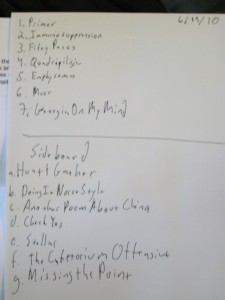 6/19/10
1. Primer
2. Immunosuppression
3. Fifty Paces
4. Quadriplegic
5. Emphysema
6. Moor
7. Georgia On My Mind
Sideboard
a. Hunt
b. Doing It Norse Style
c. Another Poem About China
d. Check Yes
e. Stellar
f. The Criterium Offensive
g. Missing the Point